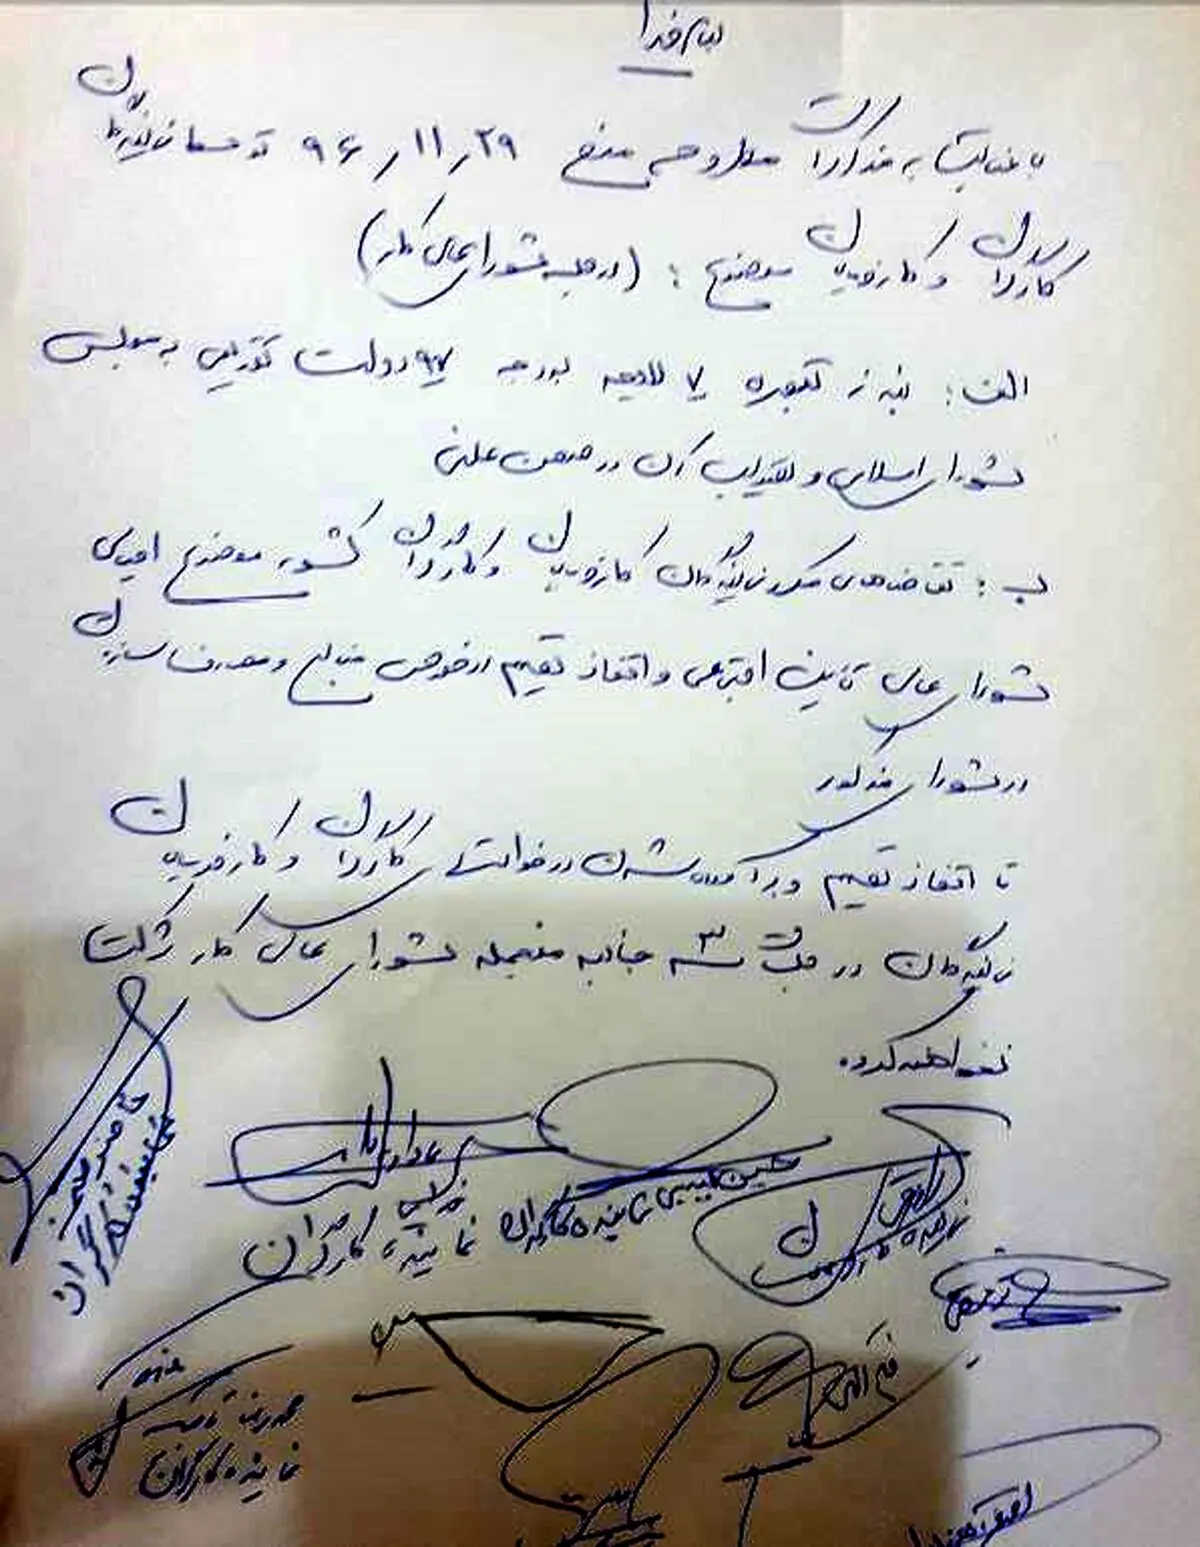 بنام خدا
با عنایت به مذاکرات مطروحه مورخ ۹۶/۱۱/۲۹ توسط نمایندگان
کارگران و کارفرمایان موضوع : (در جلسه شورای عالی کار)
الف : بند ز تبصره ۷ لایحه بودجه ۹۷ دولت تقدیمی به مجلس
شورای اسلامی و تصویب آن در صحن علنی
ب : تقاضاهای مکرر نمایندگان کارفرمایان و کارگران کشور موضوع احیای
شورای عالی تامین اجتماعی و اتخاذ تصمیم در خصوص منابع و مصارف سازمان
در شورای مذکور
تا اتخاذ تصمیم و برآورده شدن درخواست کارگران و کارفرمایان
نمایندگان در جلسات ۳ جانبه منجمله شورای عالی کار شرکت
نخواهند کرد.
نماینده کارگران
حسین حبیبی نماینده کارگران
نماینده کارگران
نماینده کارفرمایان
فتح الله
محمدرضا
نماینده کارگران